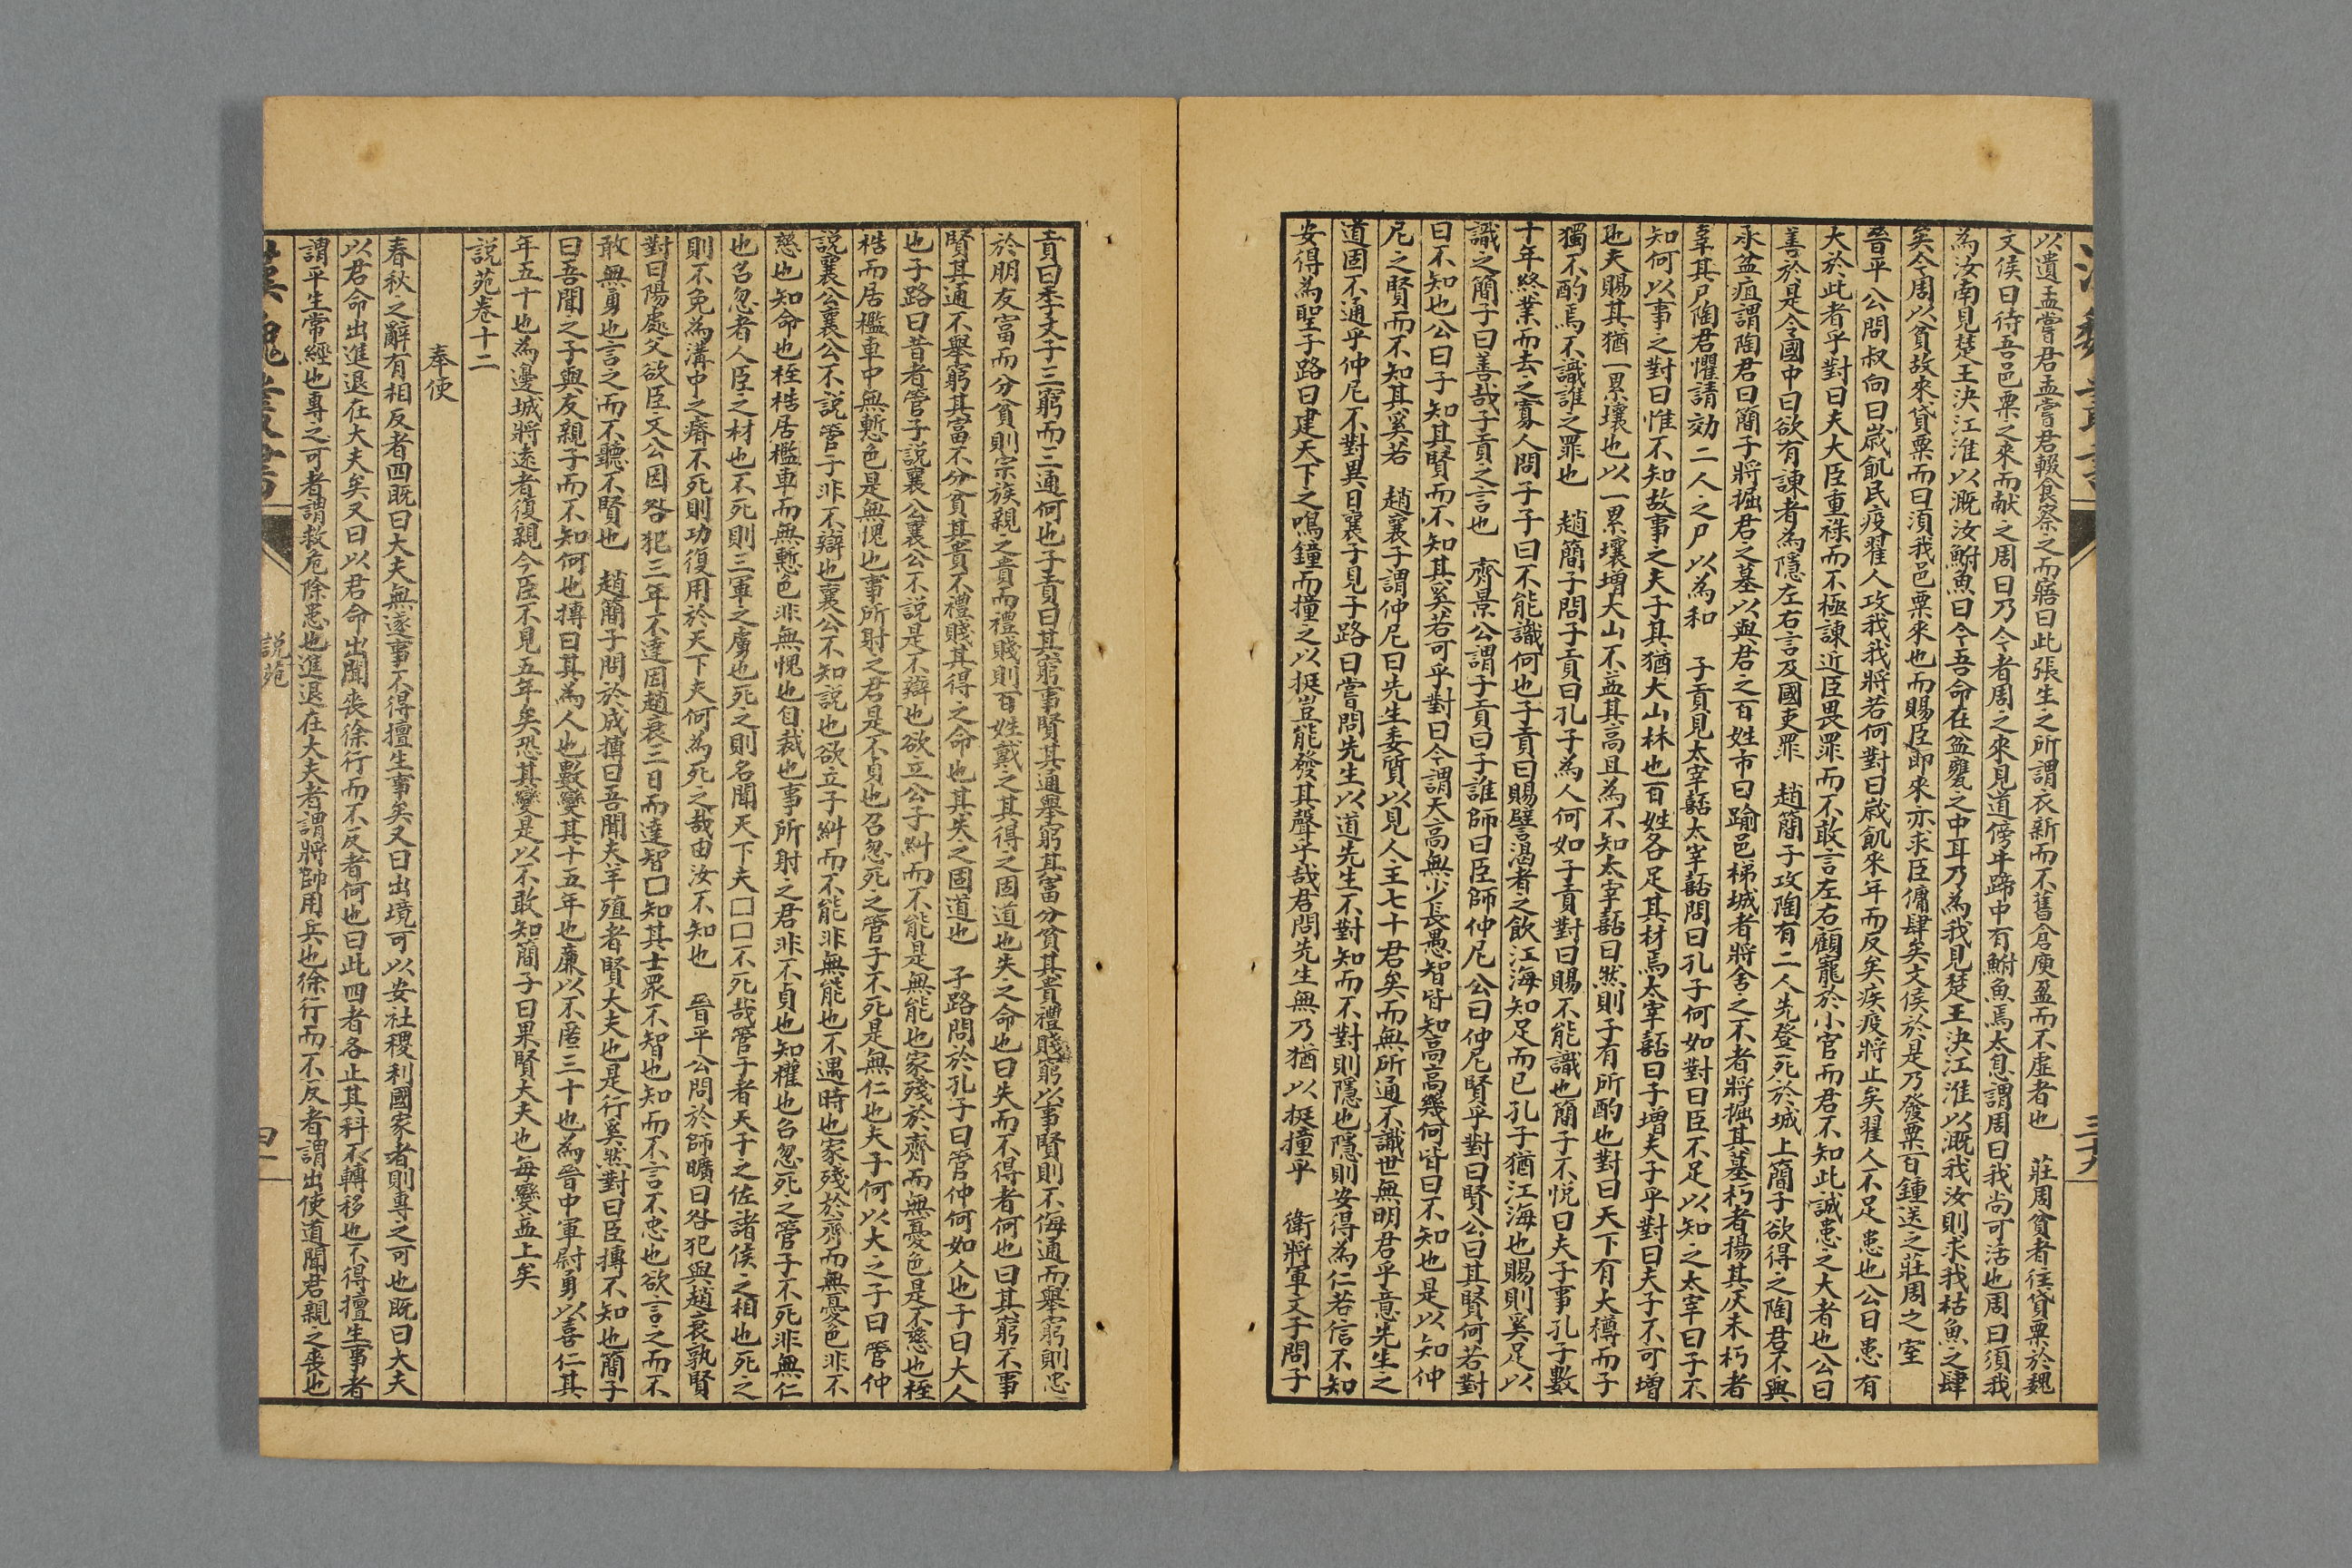 以遺孟嘗君孟嘗君輟食察之而寤曰此張生之所謂衣新而不舊倉庾盈而不虛者也　莊周貧者往貸粟於魏
文侯曰待吾邑粟之來而献之周曰乃今者周之來見道傍牛蹄中有鮒魚焉太息謂周曰我尚可活也周曰須我
為汝南見楚王決江淮以溉汝鮒魚曰今吾命在盆甕之中耳乃為我見楚王決江淮以溉我汝則求我枯魚之肆
矣今周以貧故來貸粟而曰湏我邑粟來也而賜臣即來亦求臣傭肆矣文侯於是乃發粟百鍾送之莊周之室
晉平公問叔向曰歲飢民疫翟人攻我我將若何對曰歲飢來年而反矣疾疫將止矣翟人不足患也公曰患有
大於此者乎對曰夫大臣重祿而不極諫近臣畏罪而不敢言左右顧寵於小官而君不知此誠患之大者也公曰
善於是令國中曰欲有諫者為隱左右言及國吏罪　趙簡子攻陶有二人先登死於城上簡子欲得之陶君不與
承盆疽謂陶君曰簡子將掘君之墓以與君之百姓市曰踰邑梯城者將舍之不者將掘其墓朽者揚其灰未朽者
辜其尸陶君懼請効二人之尸以為和　子貢見太宰嚭太宰嚭問曰孔子何如對曰臣不足以知之太宰曰子不
知何以事之對曰惟不知故事之夫子其猶大山林也百姓各足其材焉太宰嚭曰子增夫子乎對曰夫子不可增
也夫賜其猶一累壤也以一累壤增大山不益其高且為不知太宰嚭曰然則子有所酌也對曰天下有大樽而子
獨不酌焉不識誰之罪也　趙簡子問子貢曰孔子為人何如子貢對曰賜不能識也簡子不悅曰夫子事孔子數
十年終業而去之寡人問子子曰不能識何也子貢曰賜譬渴者之飲江海知足而已孔子猶江海也賜則奚足以
識之簡子曰善哉子貢之言也　齊景公謂子貢曰子誰師曰臣師仲尼公曰仲尼賢乎對曰賢公曰其賢何若對
曰不知也公曰子知其賢而不知其奚若可乎對曰今謂天高無少長愚智皆知高高幾何皆曰不知也是以知仲
尼之賢而不知其奚若　趙襄子謂仲尼曰先生委質以見人主七十君矣而無所通不識世無明君乎意先生之
道固不通乎仲尼不對異日襄子見子路曰嘗問先生以道先生不對知而不對則隱也隱則安得為仁若信不知
安得為聖子路曰建天下之鳴鐘而撞之以挺豈能發其聲乎哉君問先生無乃猶以挺撞乎　衛將軍文子問子
貢曰季文子三窮而三通何也子貢曰其窮事賢其通舉窮其富分貧其貴禮賤窮以事賢則不侮通而舉窮則忠
於朋友富而分貧則宗族親之貴而禮賤則百姓戴之其得之固道也失之命也曰失而不得者何也曰其窮不事
賢其通不舉窮其富不分貧其貴不禮賤其得之命也其失之固道也　子路問於孔子曰管仲何如人也子曰大人
也子路曰昔者管子說襄公襄公不說是不辯也欲立公子糾而不能是無能也家殘於齊而無憂色是不慈也桎
梏而居檻車中無慙色是無愧也事所射之君是不貞也召忽死之管子不死是無仁也夫子何以大之子曰管仲
說襄公襄公不說管子非不辯也襄公不知說也欲立子糾而不能非無能也不遇時也家殘於齊而無憂色非不
慈也知命也桎梏居檻車而無慙色非無愧也自裁也事所射之君非不貞也知權也召忽死之管子不死非無仁
也召忽者人臣之材也不死則三軍之虜也死之則名聞天下夫□□不死哉管子者天子之佐諸侯之相也死之
則不免為溝中之瘠不死則功復用於天下夫何為死之哉由汝不知也　晉平公問於師曠曰咎犯與趙衰孰賢
對曰陽處父欲臣文公因咎犯三年不達因趙衰三日而達智□知其士眾不智也知而不言不忠也欲言之而不
敢無勇也言之而不聽不賢也　趙簡子問於成摶曰吾聞夫羊殖者賢大夫也是行奚然對曰臣摶不知也簡子
曰吾聞之子與友親子而不知何也摶曰其為人也數變其十五年也廉以不匿三十也為晉中軍尉勇以喜仁其
年五十也為邊城將遠者復親今臣不見五年矣恐其變是以不敢知簡子曰果賢大夫也每變益上矣
説苑卷十二
奉使
春秋之辭有相反者四既曰大夫無遂事不得擅生事矣又曰出境可以安社稷利國家者則專之可也既曰大夫
以君命出進退在大夫矣又曰以君命出聞喪徐行而不反者何也曰此四者各止其科不轉移也不得擅生事者
謂平生常經也專之可者謂救危除患也進退在大夫者謂將帥用兵也徐行而不反者謂出使道聞君親之喪也
説苑